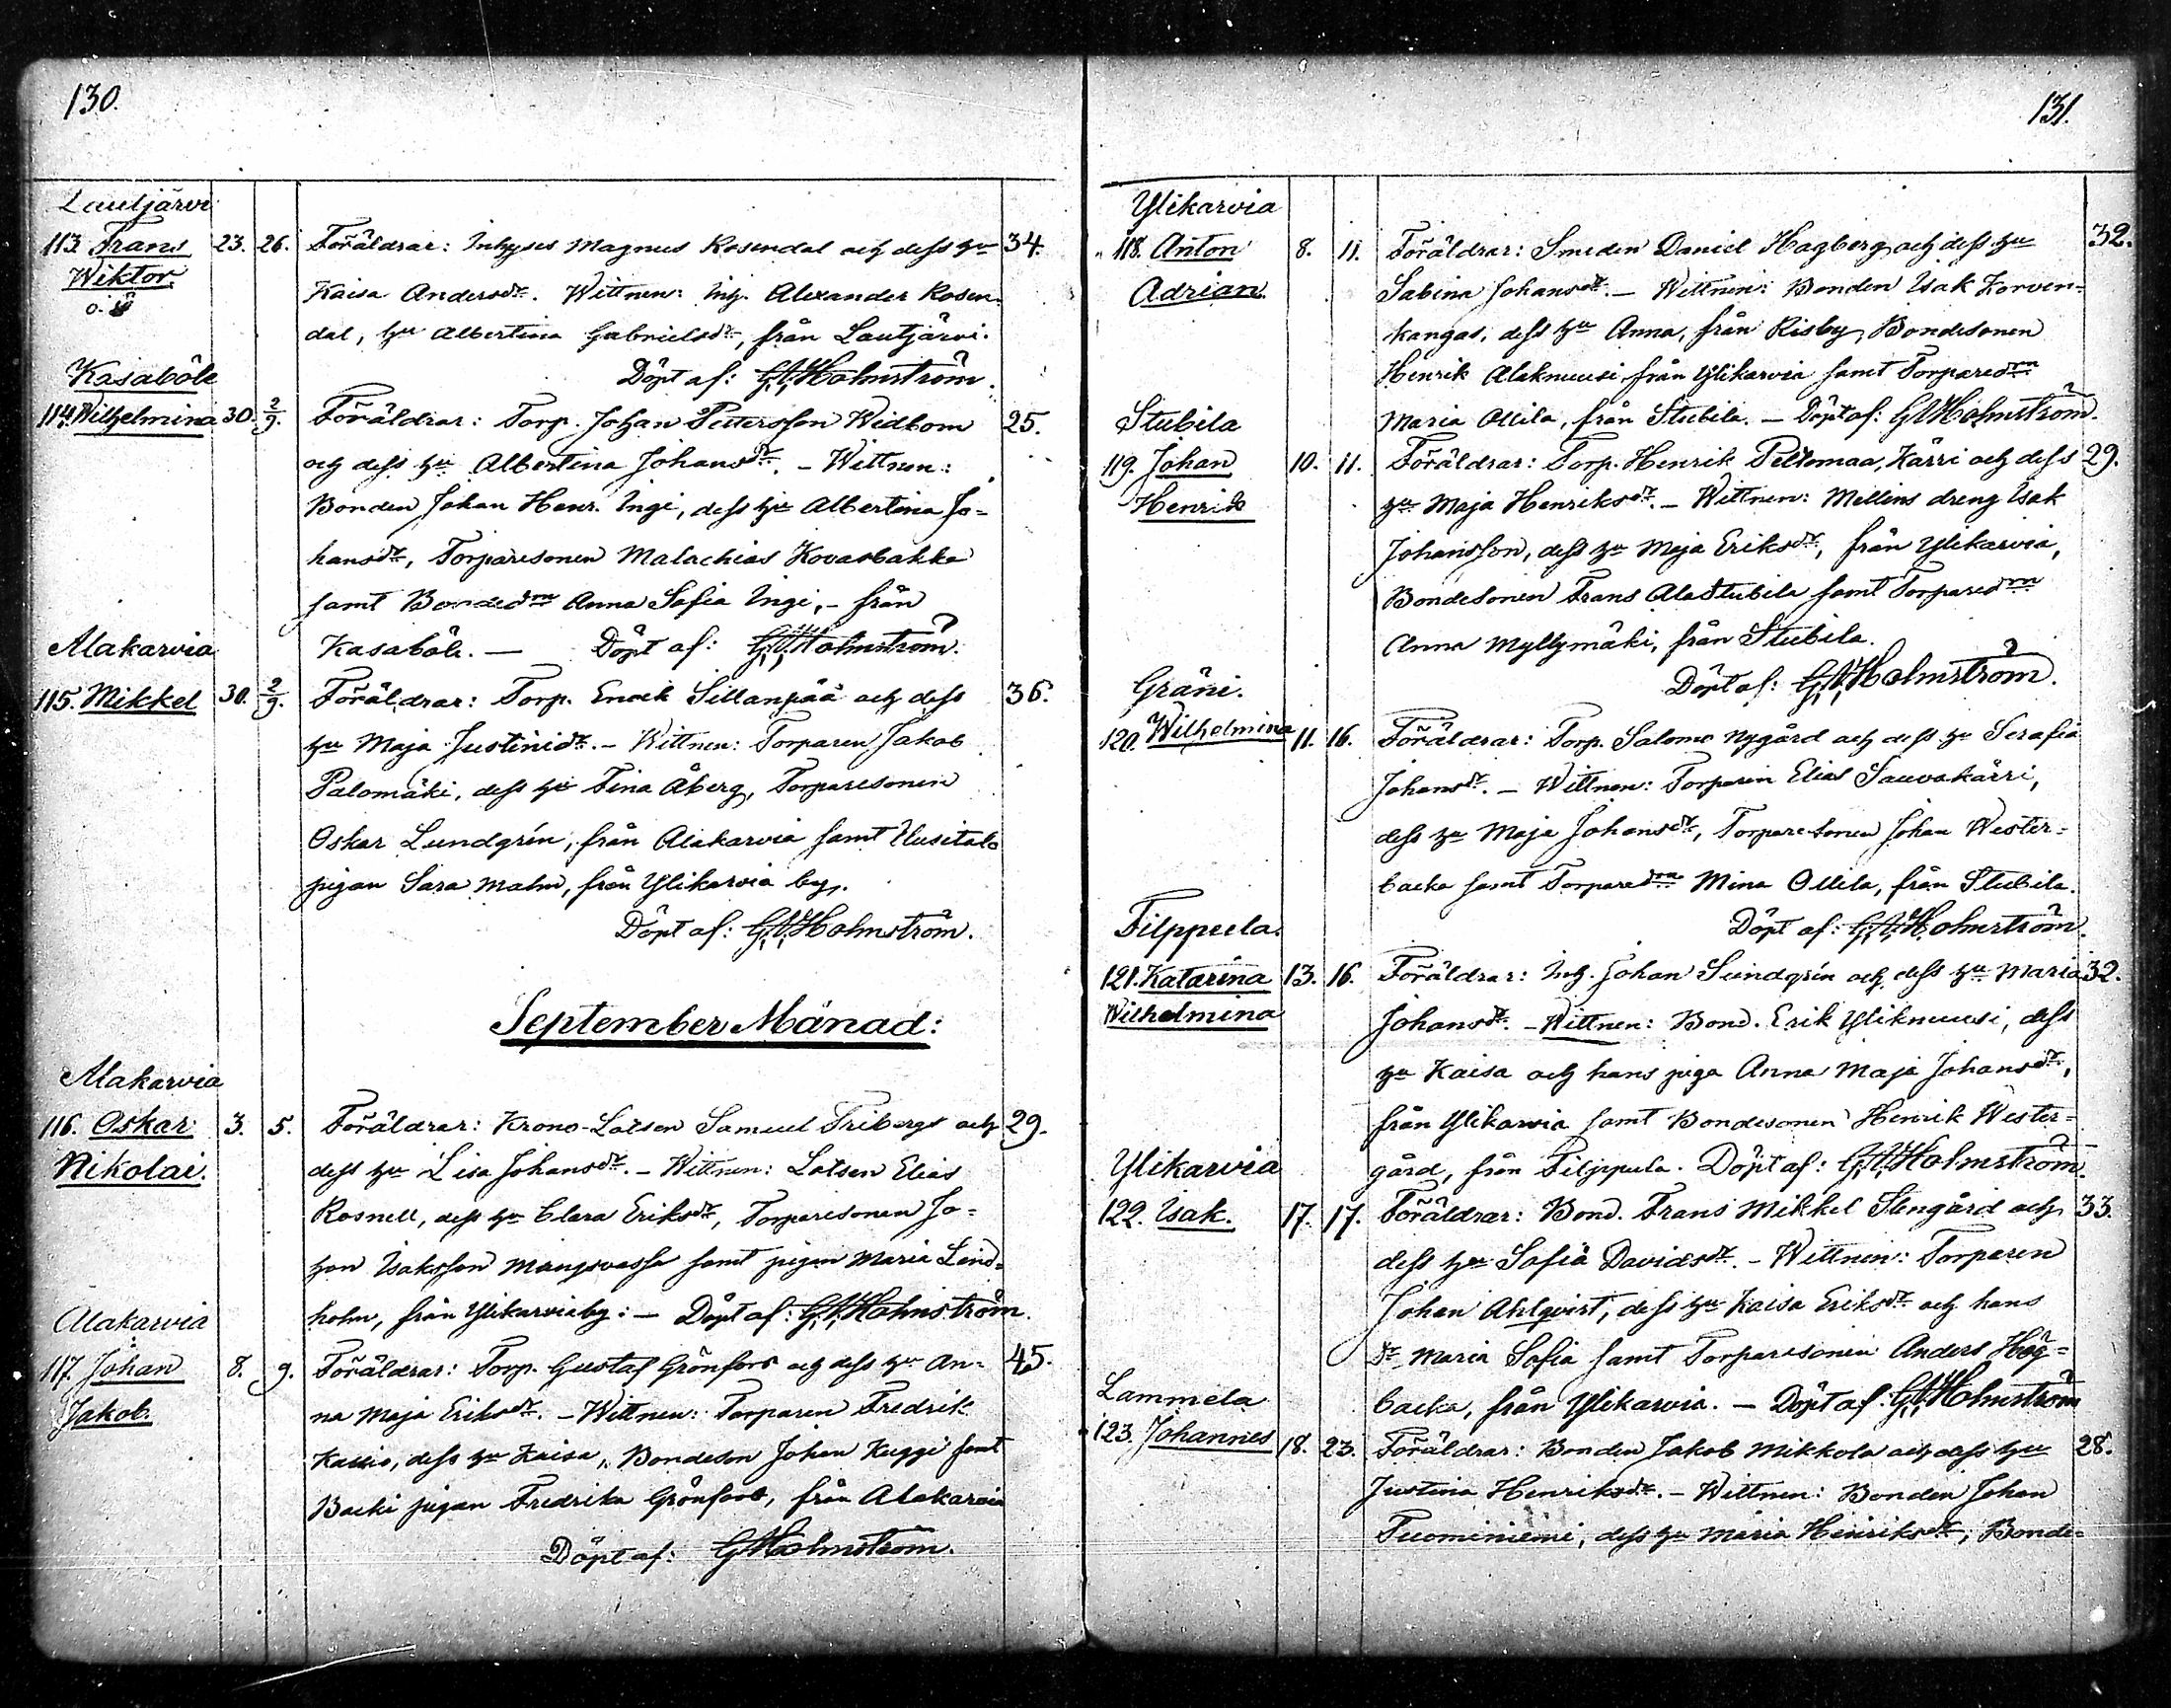 130.
Lautjärvi
113. Frans 23. 26. Föräldrar: Inhyses Magnus Rosendal och dess hu 34.
Wiktor.
Kaisa Andersdr. Wittnen: Inh. Alexander Rosen-
dal, hu Albertina Gabrielsdr, från Lautjärvi.
Kasaböle
Döpt af: G.A.Holmström.
114. Wilhelmina 30. 2/9. Föräldrar: Torp. Johan Pettersson Widbom 25.
och dess hu Albertina Johansdr. – Wittnen:
Bonden Johan Henr. Ingi, dess hu Albertina Jo-
hansdr, Torparesonen Malachias Kovasbakka
samt Bondedrn Anna Sofia Ingi, – från
Kasaböle. — Döpt af: G.A.Holmström.
Alakarvia
115. Mikkel 30. 2/9. Föräldrar: Torp. Enok Sillanpää och dess 36.
hu Maja Justinidr. – Wittnen: Torparen Jakob
Palomäki, dess hu Fina Åberg, Torparesonen
Oskar Lundgrén, från Alakarvia samt Uusitalo
pigan Sara Malm, från Ylikarvia by.
Döpt af: G.A.Holmström.
September Månad:
Alakarvia
116. Oskar 3. 5. Föräldrar: Krono-Lotsen Samuel Friberg och 29.
Nikolai.
dess hu Lisa Johansdr. – Wittnen: Lotsen Elias
Rosnell, dess hu Clara Eriksdr, Torparesonen Jo-
han Isaksson samt pigan Maria Lind-
holm, från Ylikarviaby: – Döpt af: G.A.Holmström.
Alakarvia
117. Johan 8. 9. Föräldrar: Torp. Gustaf Grönfors och dess hu An- 45.
Jakob.
na Maja Eriksdr. – Wittnen: Torparen Fredrik
dess hu Kaisa, Bondeson Johan Kuggi samt
Backi pigan Fredrika Grönfors, från Alakarvia
Döpt af: G.A.Holmström.
131.
Ylikarvia
118. Anton 8. 11. Föräldrar: Smeden Daniel Hagberg och dess hu 32.
Adrian.
Sabina Johansdr. – Wittnen: Bonden Isak Korven-
kangas, dess hu Anna, från Risby, Bondesonen
Henrik Alaknuusi från Ylikarvia samt Torparedrn
Stubila
Maria Ollila, från Stubila. – Döpt af: G.A.Holmström.
119. Johan 10. 11. Föräldrar: Torp. Henrik Peltomaa, Kärri och dess 29.
Henrik
hu Maja Henriksdr. – Wittnen: Mellins dreng Isak
Johansson, dess hu Maja Eriksdr, från Ylikarvia,
Bondesonen Frans Alastubila samt Torparedrn
Anna Myllymäki, från Stubila.
Gräni.
Döpt af: G.A.Holmström.
120. Wilhelmina 11. 16. Föräldrar: Torp. Salomo Nygård och dess hu Serafia
Johansdr. – Wittnen: Torparen Elias Sauvakärri,
dess hu Maja Johansdr, Torparesonen Johan Wester-
backa samt Torparedrn Mina Ollila, från Stubila.
Filppula.
Döpt af: G.A.Holmström.
121. Katarina 13. 16. Föräldrar: Inh. Johan Sundgrén och dess hu Maria 32.
Wilhelmina
Johansdr. – Wittnen: Bond. Erik Yliknuusi, dess
hu Kaisa och hans piga Anna Maja Johansdr,
från Ylikarvia samt Bondesonen Henrik Wester-
Ylikarvia
gård, från Filppula. Döpt af: G.A.Holmström.
122. Isak. 17. 17. Föräldrar: Bond. Frans Mikkel Stengård och 33.
dess hu Sofia Davidsdr. – Wittnen: Torparen
Johan Ahlqvist, dess hu Kaisa Eriksdr och hans
dr Maria Sofia samt Torparesonen Anders Hög-
Lammela
backa, från Ylikarvia. – Döpt af: G.A.Holmström
123. Johannes 18. 23. Föräldrar: Bonden Jakob Mikkola och dess hu 28.
Justina Henriksdr. – Wittnen: Bonden Johan
Tuominiemi, dess hu Maria Henriksdr, Bonde-